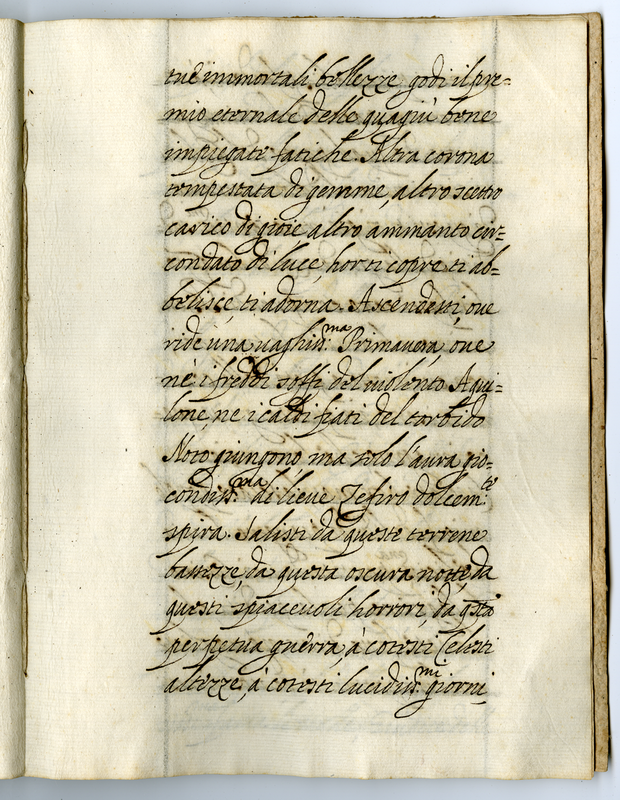 tue immortali bellezze godi il pre=
mio eternale delle quagiù bene
impiegate fatiche. Altra corona
tempestata di gemme, altro scettro
carico di gioie altro ammanto cir=
condato di luce, hor ti copre ti ab=
belisce, ti adorna. Ascendesti, oue
ride una uaghiss:ma Primauera, oue
nè i freddi soffi del uiolento Aqui=
lone, ne i caldi fiati del torbido
Noto giungono, ma solo l'aura gio=
condiss:ma di lieue Zefiro dolcem:te
spira. Salisti da queste terrene
bassezze, da questa oscura notte, da
questi spiaceuoli horrori, da qsta
perpetua guerra, à cotesti Celesti
altezze, à cotesti lucidiss:mi giorni,